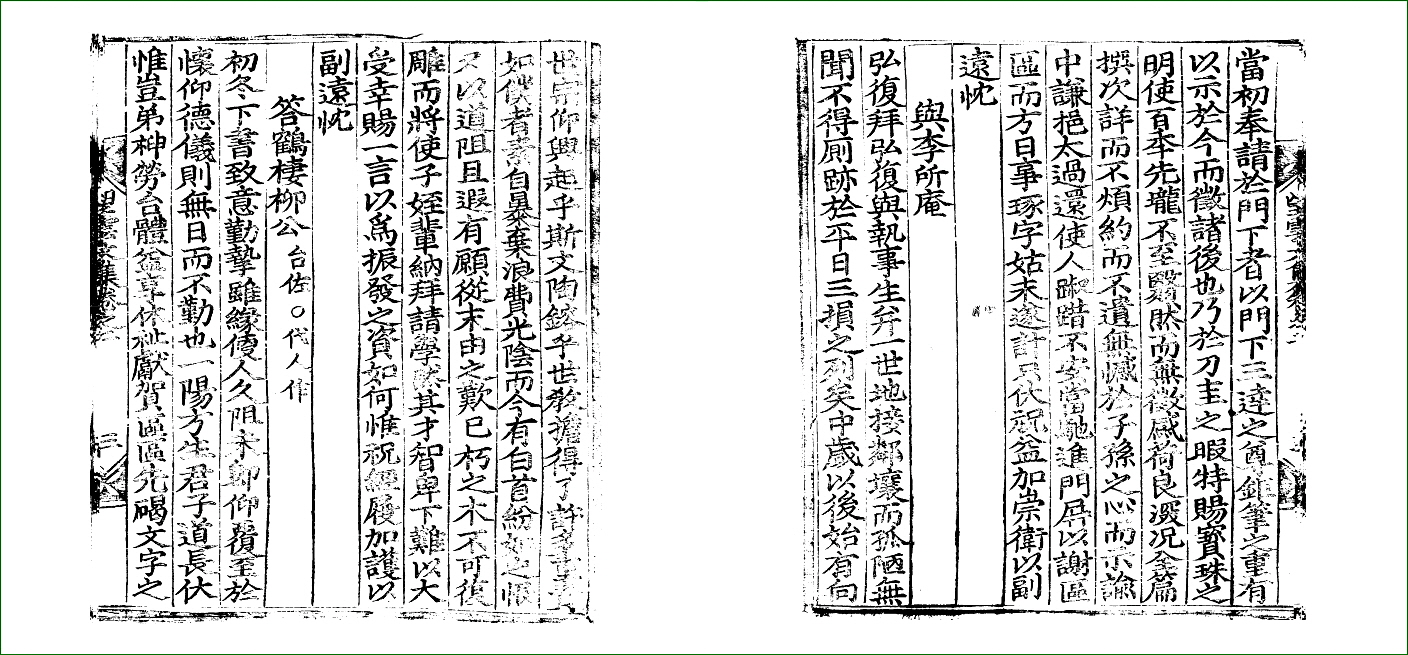 當初奉請於門下者以門下三達之尊鉅筆之重有
以示於今而徵諸後也乃於刀圭之暇特賜寶珠之
明使百本先壠不至翳然而無徵感荷良深况全篇
撰次詳而不煩約而不遺無憾於子孫之心而示諭
中謙挹太過還使人踧踖不安當馳進門屛以謝區
區而方日事琢字姑未遂計只伏祝益加崇衛以副
遠忱
與李所庵
弘復拜弘復與執事生幷一世地接鄰壤而孤陋無
聞不得厠跡於平日三損之列矣中歲以後始有向
世宗仰興起乎斯文陶鎔乎世敎擔得了許多
如僕者素自暴棄浪費光陰而今有白首紛如之恨
又以道阻且遐有願從末由之歎已朽之木不可復
雕而將使子姪輩納拜請學然其才智卑下難以大
受幸賜一言以爲振發之資如何惟祝經履加護以
副遠忱
答鶴棲柳公台佐○代人作
初冬下書致意勤摯雖緣便人久阻未卽仰覆至於
懷仰德儀則無日而不勤也一陽方生君子道長伏
惟豈弟神勞台體益享休祉獻賀區區先碣文字之